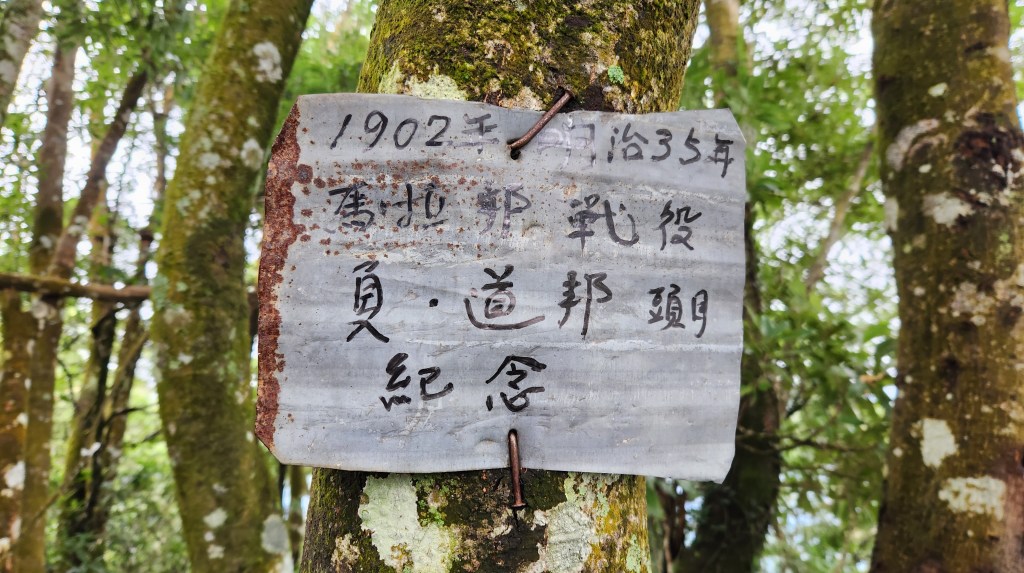 1902年 明治35年
馬拉邦戰役
員.道邦 頭目
紀念